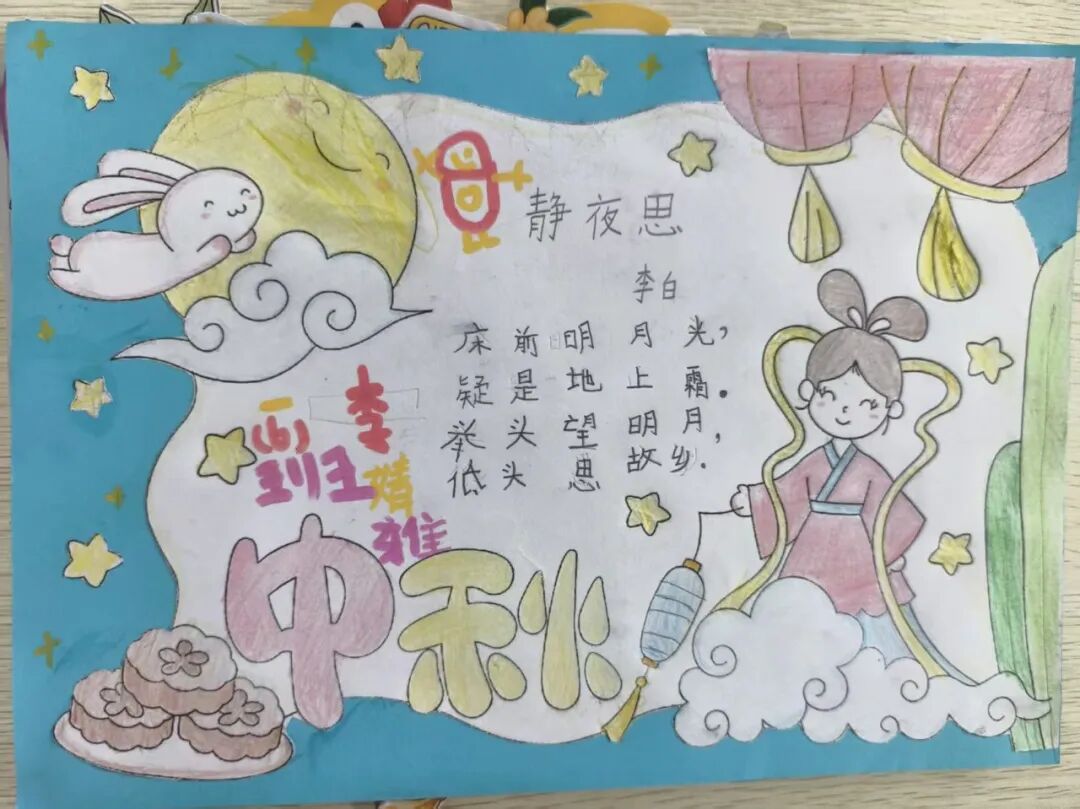 静夜思
李白
床前明月光,
疑是地上霜.
举头望明月,
低头思故乡.
一
(6)
班
李
婧
雅
中秋